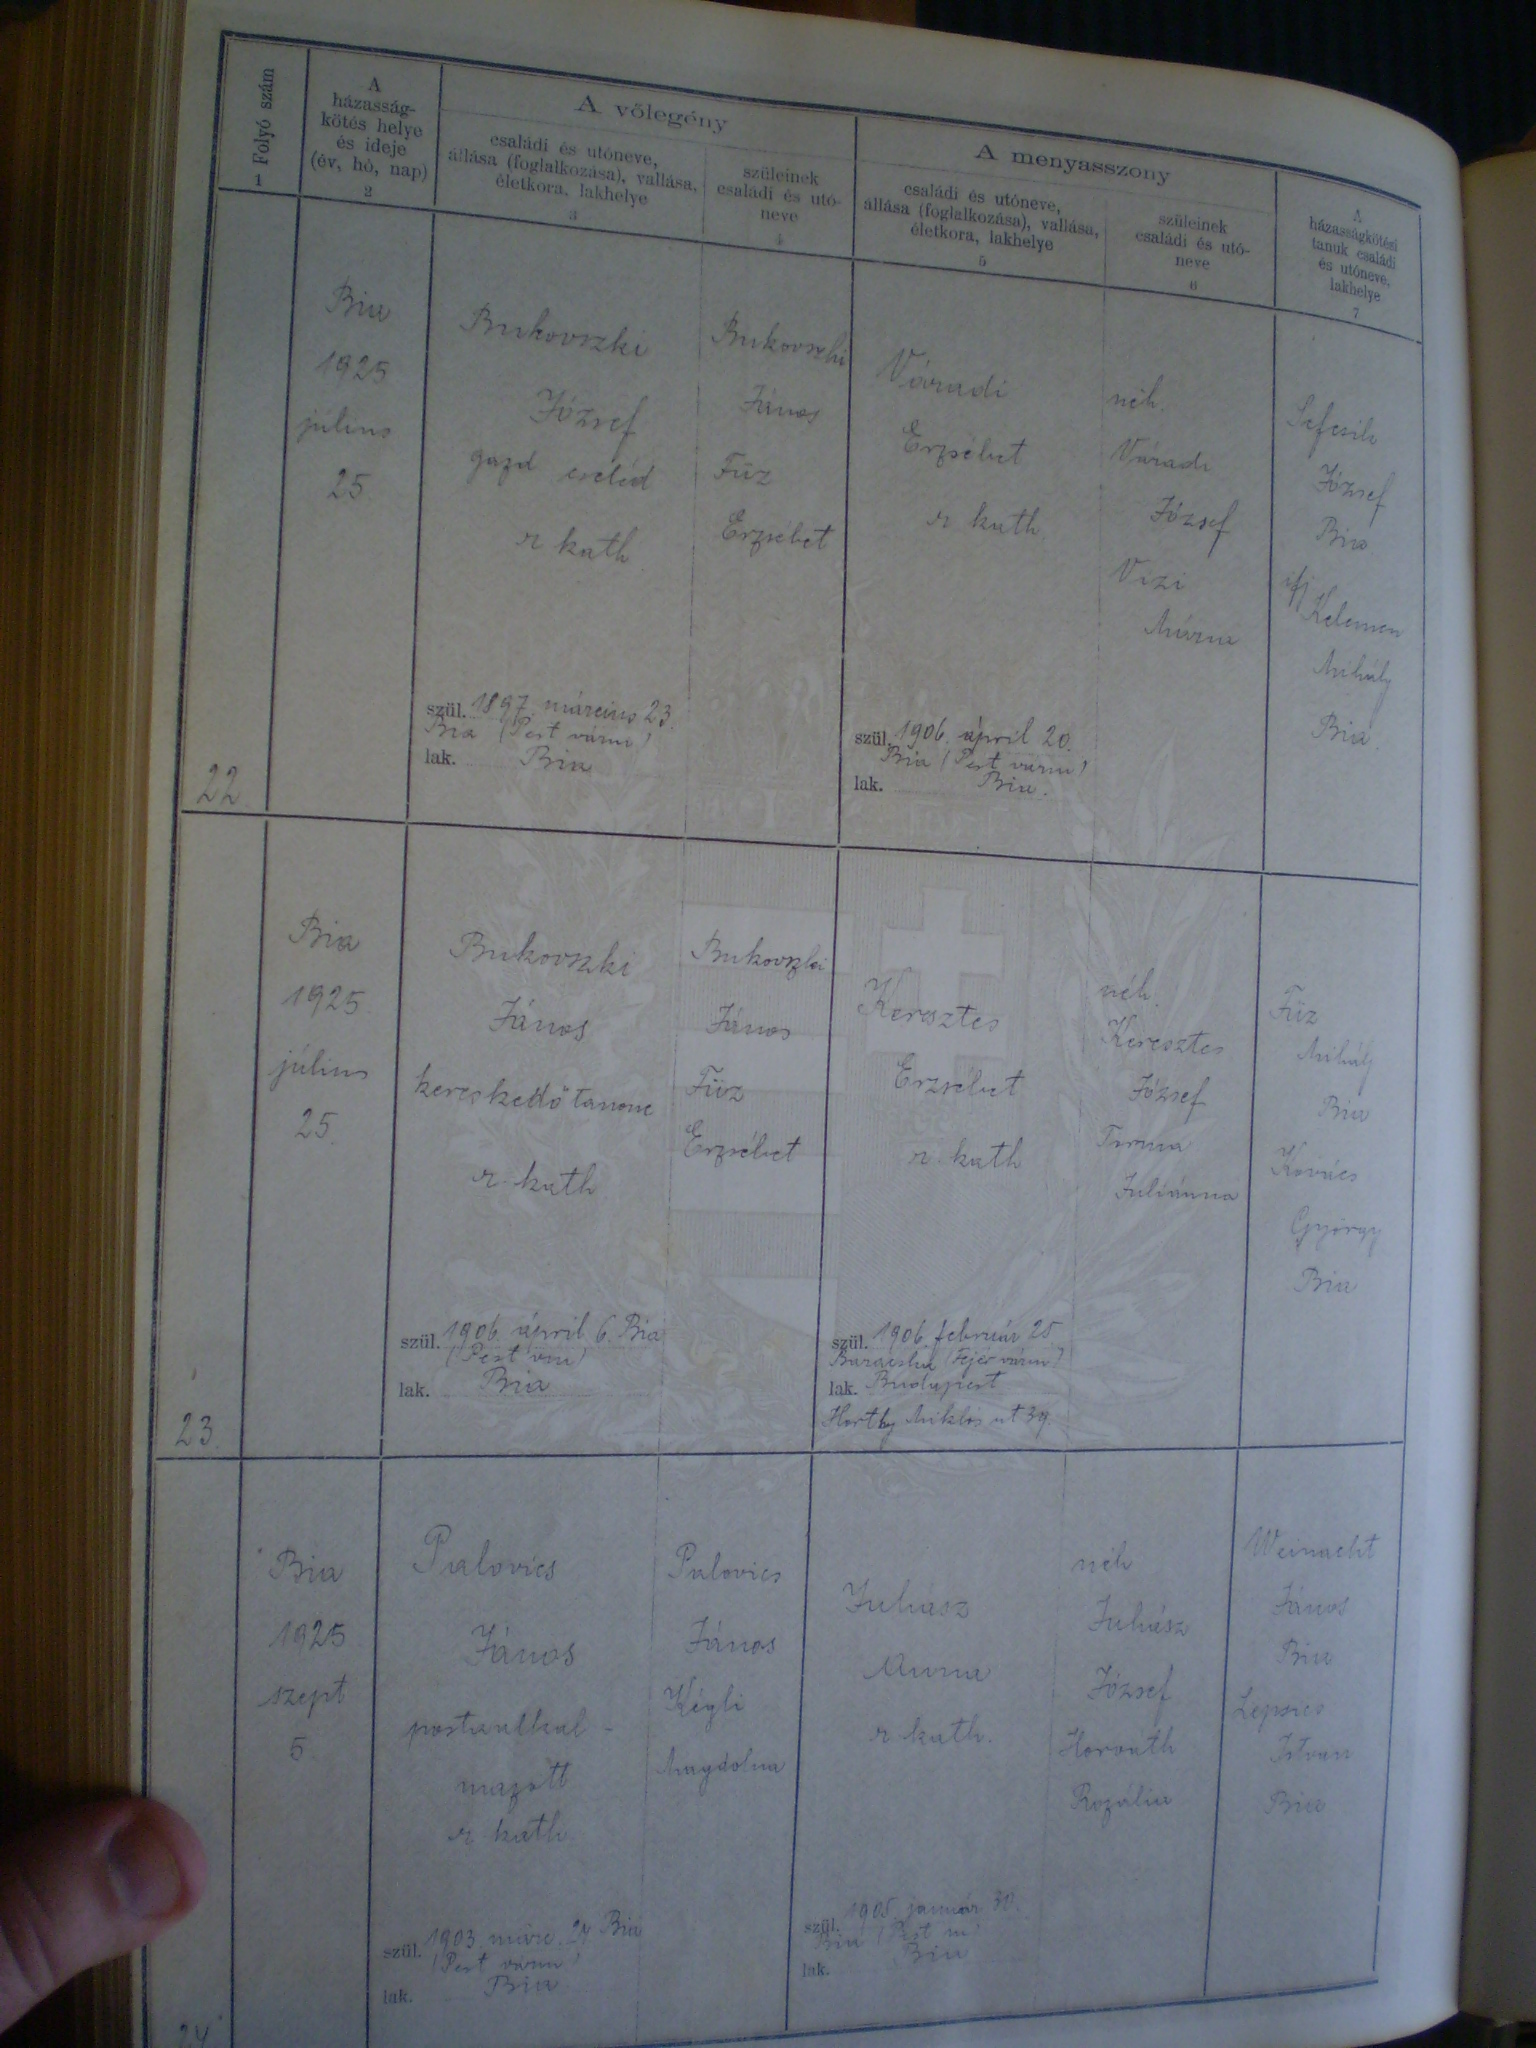 Folyó szám
1
A
házasság-
kötés helye
és ideje
(év, hó, nap)
2
A vőlegény
családi és utóneve,
állása (foglalkozása), vallása,
életkora, lakhelye
3
szüleinek
családi és utó-
neve
4
A menyasszony
családi és utóneve,
állása (foglalkozása), vallása,
életkora, lakhelye
5
szüleinek
családi és utó-
neve
6
A
házasságkötési
tanuk családi
és utóneve,
lakhelye
7
22
Bia
1925
július
25.
Bukovszki
József
gazd cseléd
r kath.
szül. 1897. március 23.
Bia (Pest várm)
lak. Bia
Bukovszki
János
Füz
Erzsébet
Váradi
Erzsébet
r kath.
szül. 1906. április 20.
Bia (Pest várm)
lak. Bia.
néh.
Váradi
József
Vizi
Mária
József
Bia
ifj Kelemen
Mihály
Bia.
23.
Bia
1925.
július
25.
Bukovszki
János
kereskedő tanonc
r. kath
szül. 1906. április 6. Bia
(Pest vm)
lak. Bia
Bukovszki
János
Füz
Erzsébet
Keresztes
Erzsébet
r. kath
szül. 1906. február 25.
Baracska (Fejér várm)
lak. Budapest
Horthy Miklós ut 39.
néh.
Keresztes
József
Juliánna
Füz
Mihály
Bia
Kovács
György
Bia
24
Bia
1925
szept
5.
Palovics
János
postaalkal-
mazott
r kath.
szül. 1903. márc. 24 Bia
(Pest várm)
lak. Bia
Palovics
János
Kégli
Magdolna
Juhász
Anna
r. kath.
szül. 1905. január 30.
Bia (Pest m)
lak. Bia
néh
Juhász
József
Horvath
Rozália
Weinacht
János
Bia
Lepsics
Istvan
Bia